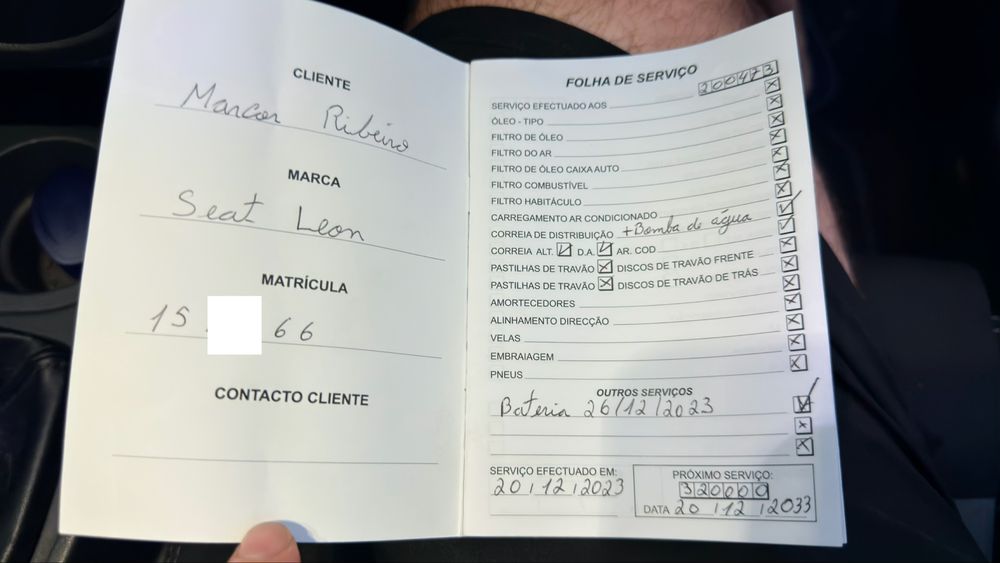 CLIENTE
Marcos Ribeiro
MARCA
Seat Leon
MATRÍCULA
15 66
CONTACTO CLIENTE
FOLHA DE SERVIÇO
SERVIÇO EFECTUADO AOS 200473
ÓLEO - TIPO
FILTRO DE ÓLEO
FILTRO DO AR
FILTRO DE ÓLEO CAIXA AUTO
FILTRO COMBUSTÍVEL
FILTRO HABITÁCULO
CARREGAMENTO AR CONDICIONADO
CORREIA DE DISTRIBUIÇÃO +Bomba de água
CORREIA ALT. D.A. AR. COD
PASTILHAS DE TRAVÃO DISCOS DE TRAVÃO FRENTE
PASTILHAS DE TRAVÃO DISCOS DE TRAVÃO DE TRÁS
AMORTECEDORES
ALINHAMENTO DIRECÇÃO
VELAS
EMBRAIAGEM
PNEUS
OUTROS SERVIÇOS
Bateria 26/12/2023
SERVIÇO EFECTUADO EM:
20/12/2023
PRÓXIMO SERVIÇO:
320000
DATA 20/12/2033